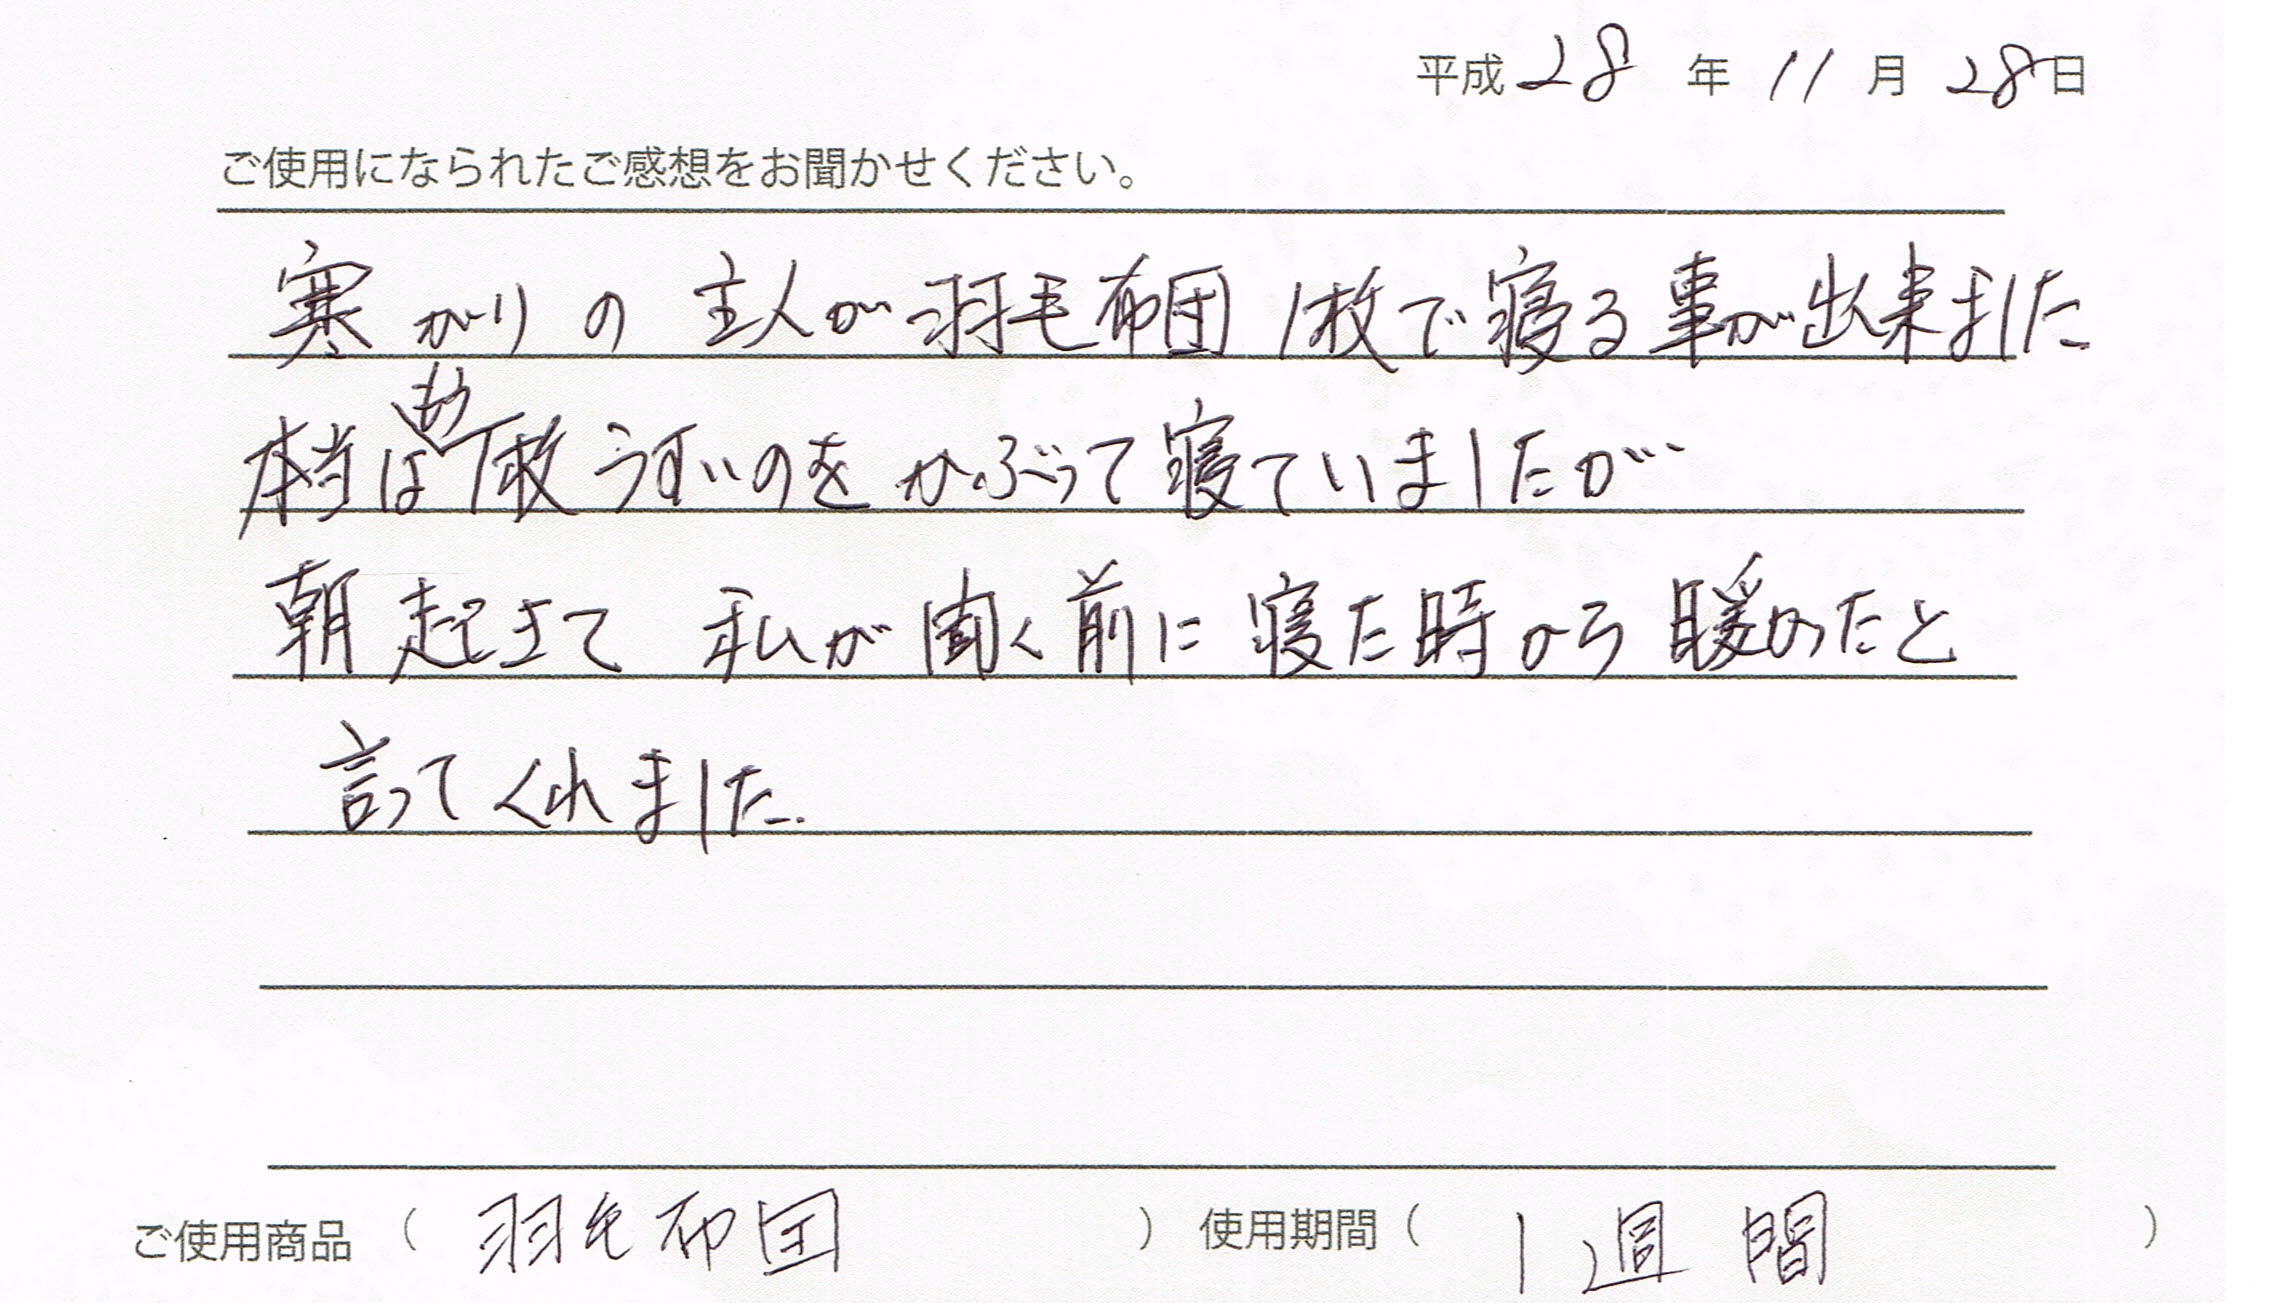 平成 28 年 11 月 28 日
ご使用になられたご感想をお聞かせください。
寒がりの 主人が羽毛布団 1枚で寝る事が出来ました
本当はもう1枚うすいのをかぶって寝ていましたが
朝起きて 私が聞く前に寝た時から暖かったと
言ってくれました。
ご使用商品 ( 羽毛布団 ) 使用期間 ( 1週間 )